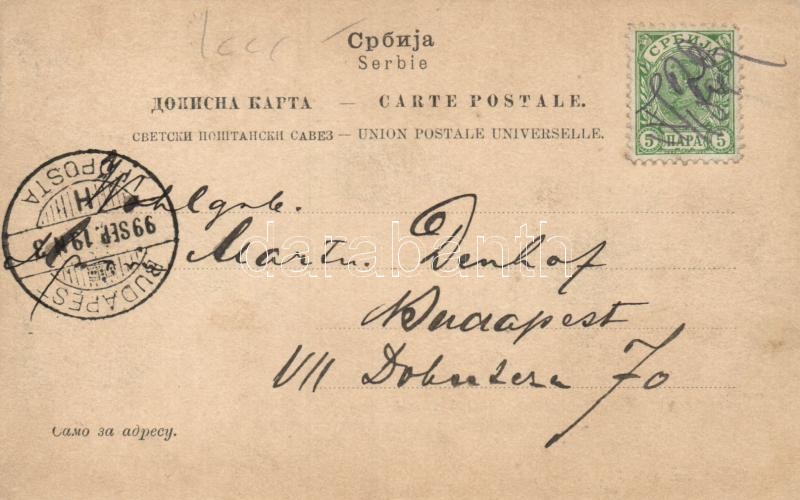 Србија
Serbie
ДОПИСНА КАРТА — CARTE POSTALE.
СВЕТСКИ ПОШТАНСКИ САВЕЗ — UNION POSTALE UNIVERSELLE.
СРБИЈА
5 ПАРА 5
BUDAPEST
99 SEP. 19
H
Wohlgeb.
Martin Denhof
Budapest
VII Dohu 70
Само за адресу.
darabanth